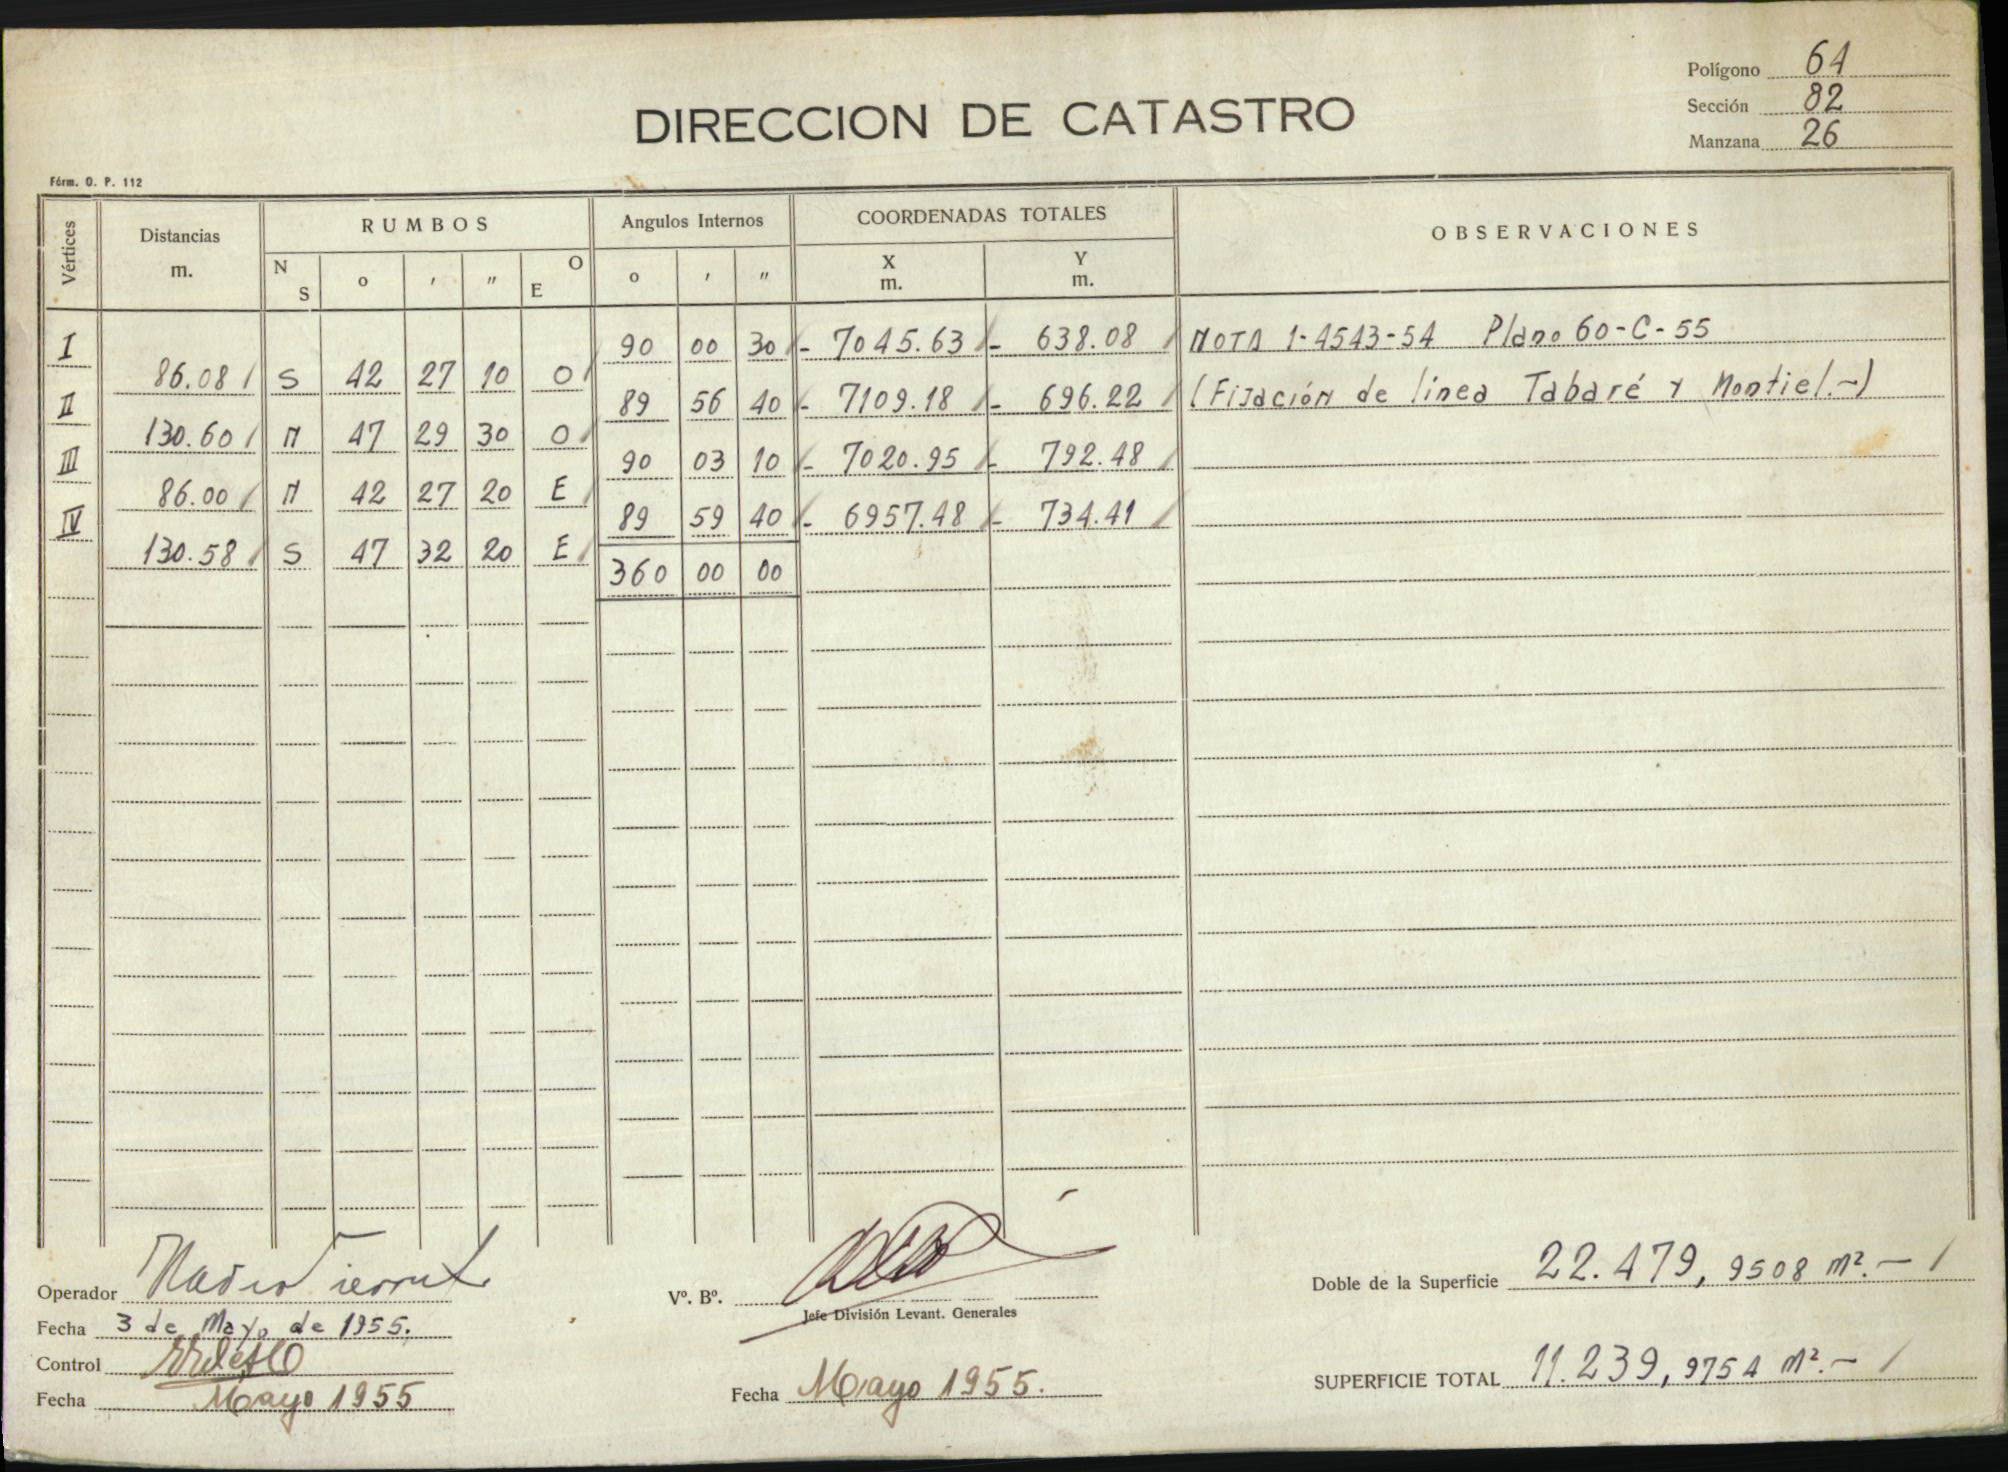 Polígono 64
Sección 82
Manzana 26
DIRECCION DE CATASTRO
Fórm. O. P. 112
Vértices Distancias m. RUMBOS Angulos Internos COORDENADAS TOTALES OBSERVACIONES
N S o ' " O E o ' " X m. Y m.
I 90 00 30 - 7045.63 - 638.08 NOTA 1-4543-54 Plano 60-C-55
86.08 S 42 27 10 O
II 89 56 40 - 7109.18 - 696.22 (Fijación de línea Tabaré y Montiel.-)
130.60 N 47 29 30 O
III 90 03 10 - 7020.95 - 792.48
86.00 N 42 27 20 E
IV 89 59 40 - 6957.48 - 734.41
130.58 S 47 32 20 E
360 00 00
Operador
Fecha 3 de Mayo de 1955.
Control
Fecha Mayo 1955
Vº. Bº.
Jefe División Levant. Generales
Fecha Mayo 1955.
Doble de la Superficie 22.479,9508 m².-
SUPERFICIE TOTAL 11.239,9754 m².-